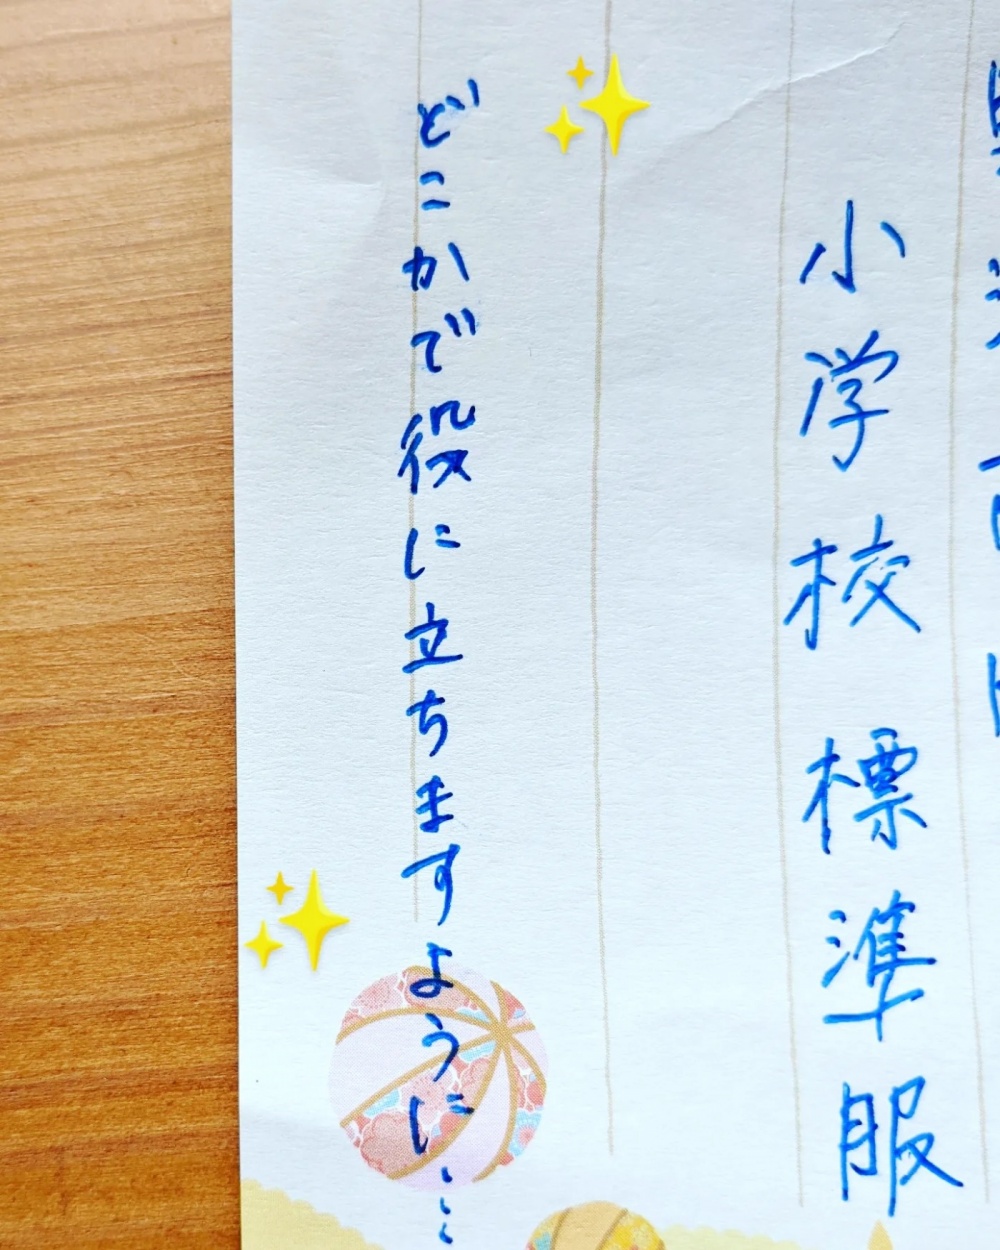 小学校標準服
どこかで役に立ちますように…